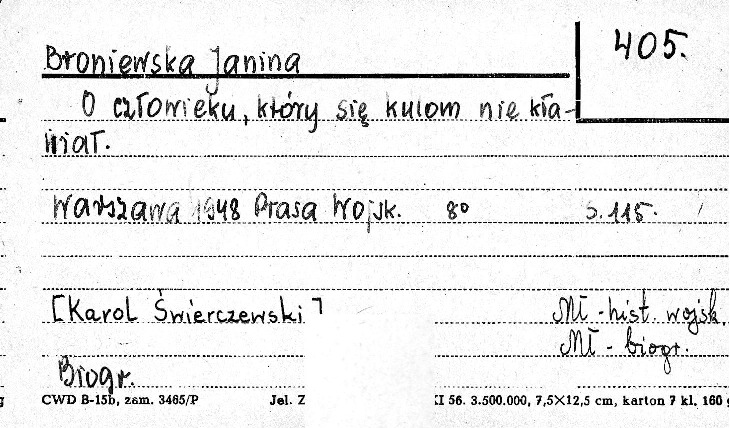 Broniewska Janina
405.
O człowieku, który się kulom nie kła-
niał.
Warszawa 1948 Prasa Wojsk. 8° s. 115.
[Karol Świerczewski]
Mł - hist. wojsk.
Mł - biogr.
Biogr.
CWD B-15b, zam. 3465/P Jel. Z XI 56. 3.500.000, 7,5×12,5 cm, karton 7 kl. 160 g